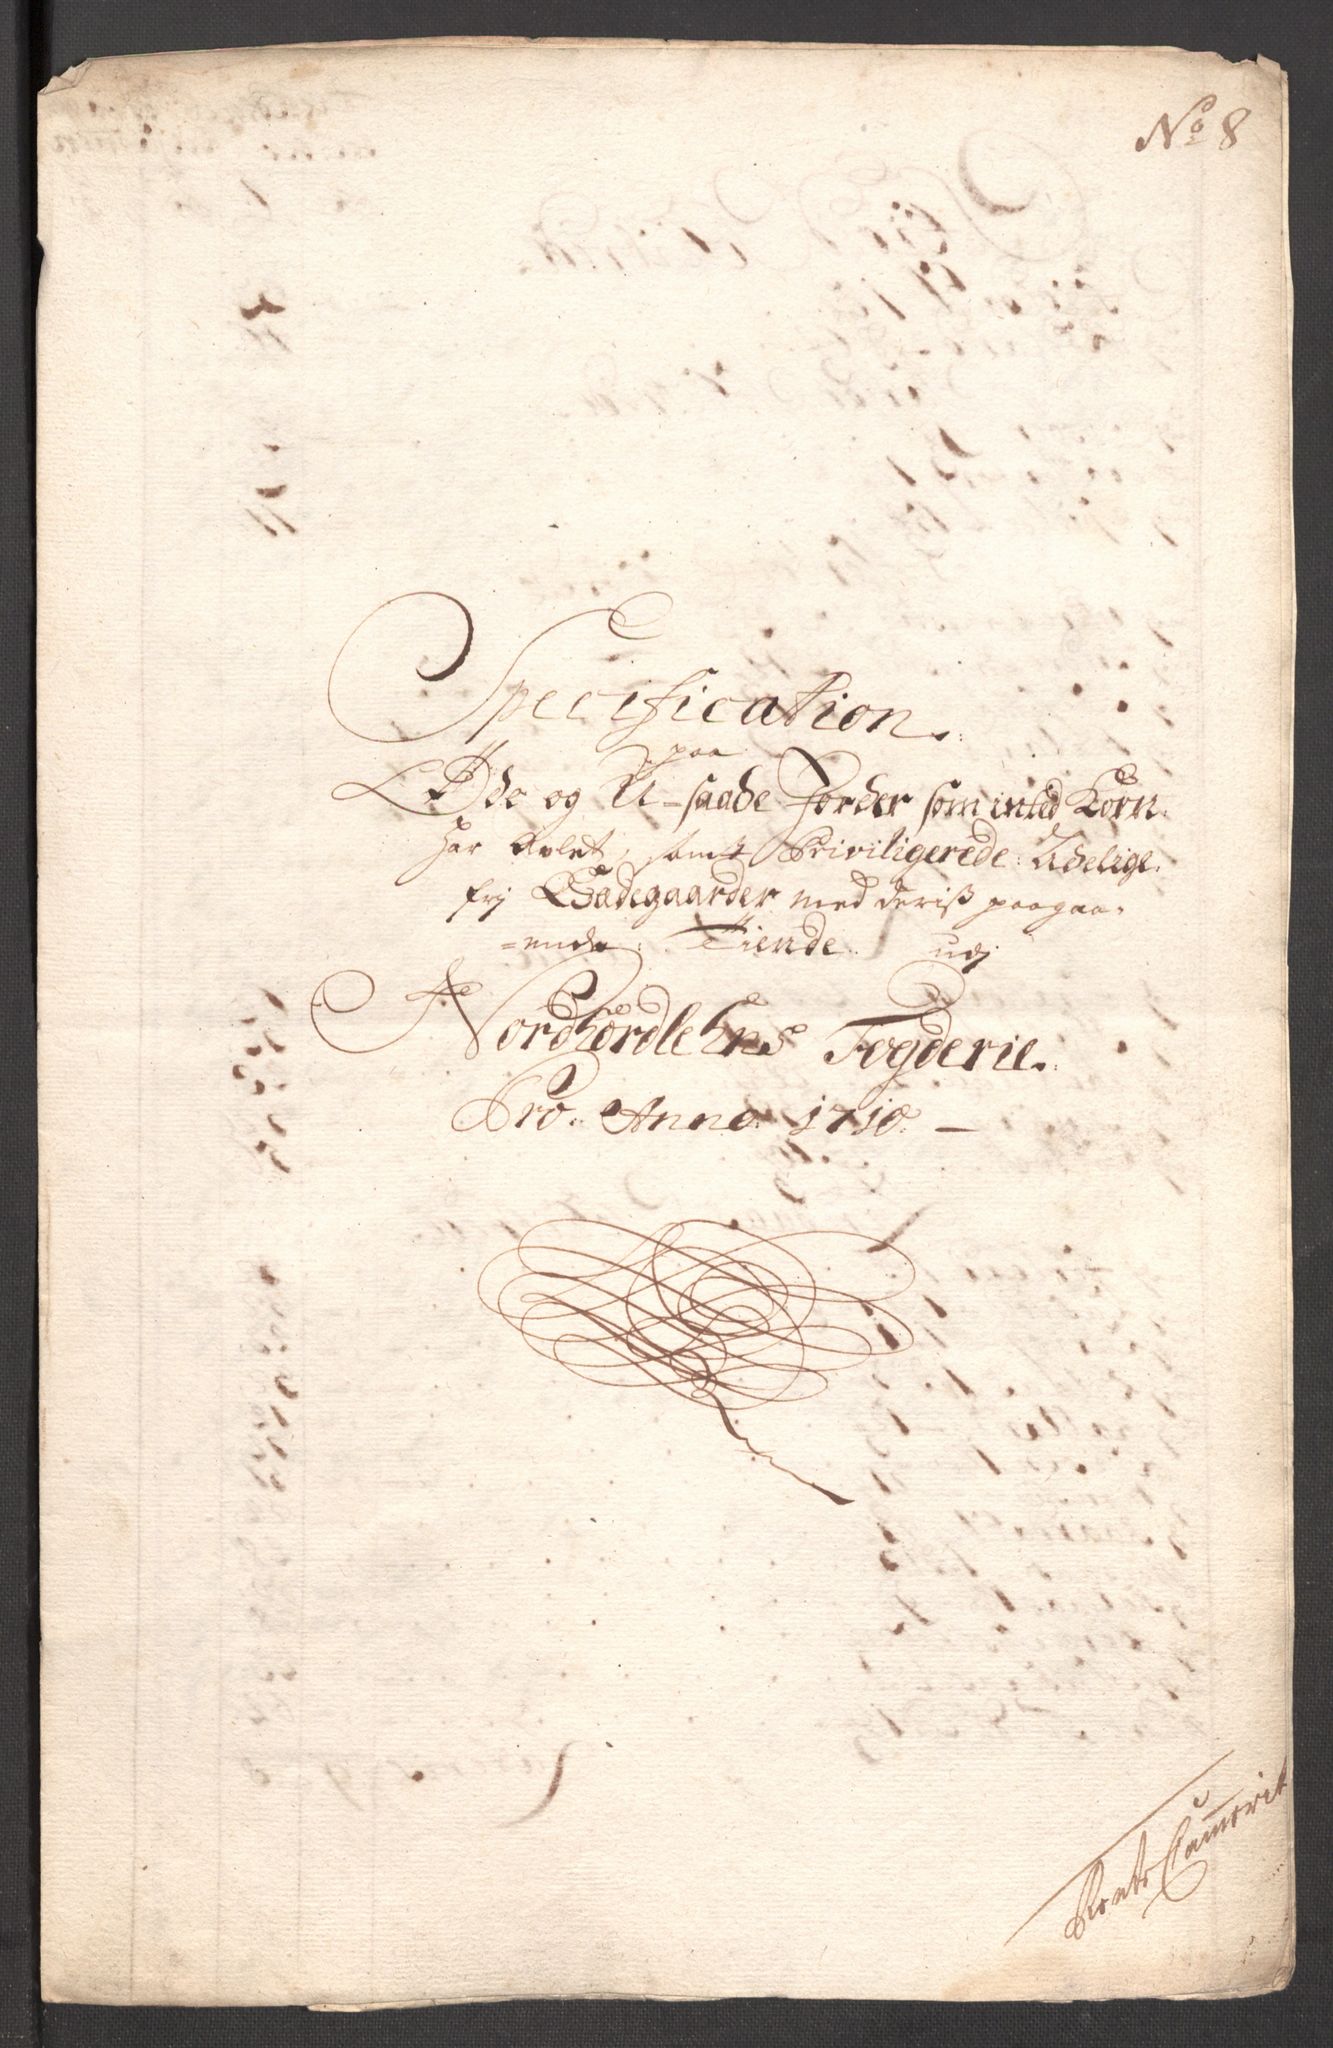 No 8
Specification.
paa
Øde og U-saade Jorder som inted Korn
har Avlet, samt Priviligerede Adelige
frj Sædegaarder med deriß paagaa-
=ende Tiende udj
Nordhordlehns Fogderie.
Pro. Anno. 1710.
Rente Cammerit